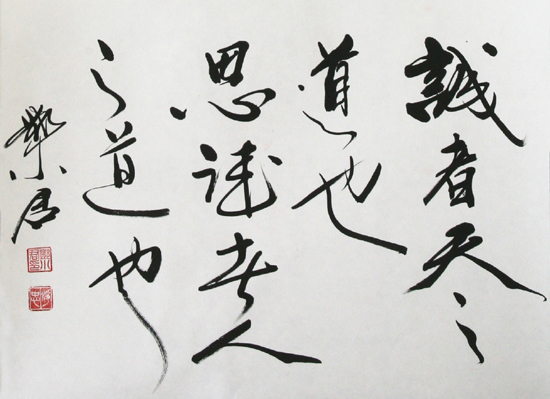 誠者天之
道也
思誠者人
之道也